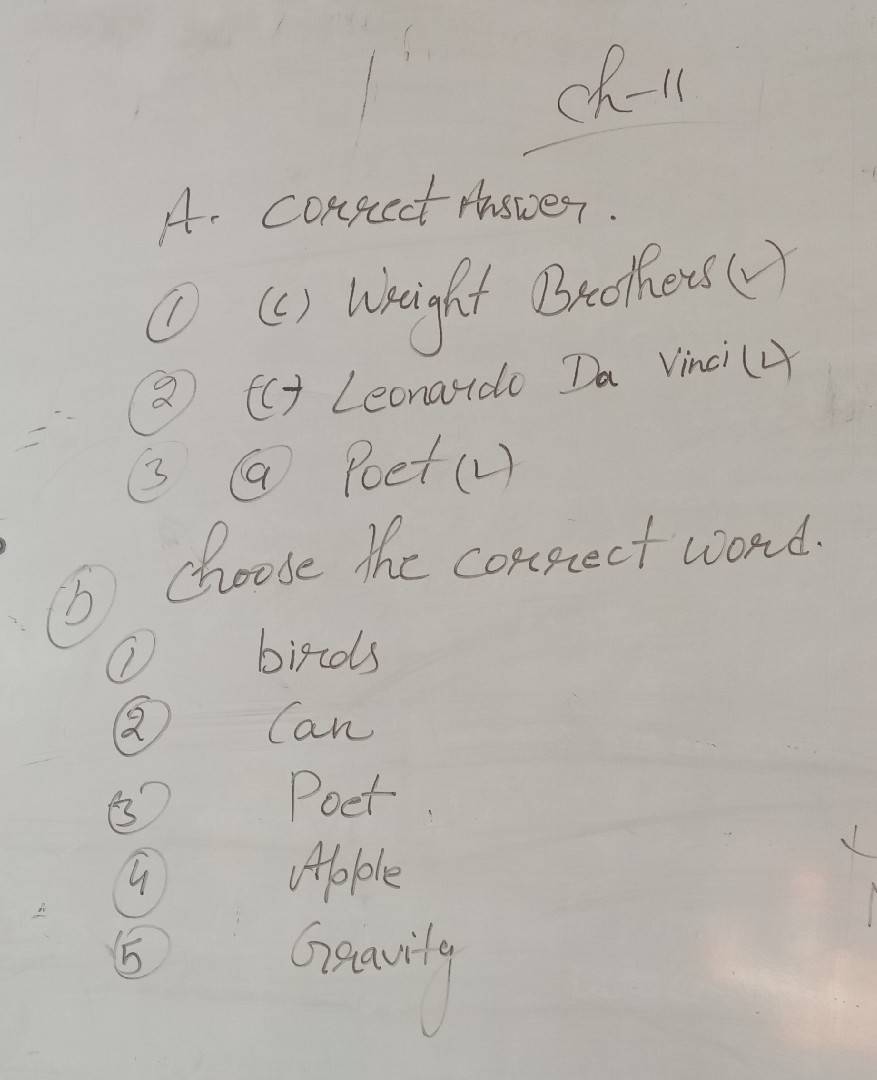 Ch-11
A. Correct Answer.
① (c) Wright Brothers (✓)
② (c) Leonardo Da Vinci (✓)
③ ⓐ Poet (✓)
ⓑ Choose the correct word.
① birds
② Can
③ Poet.
④ Apple
⑤ Gravity